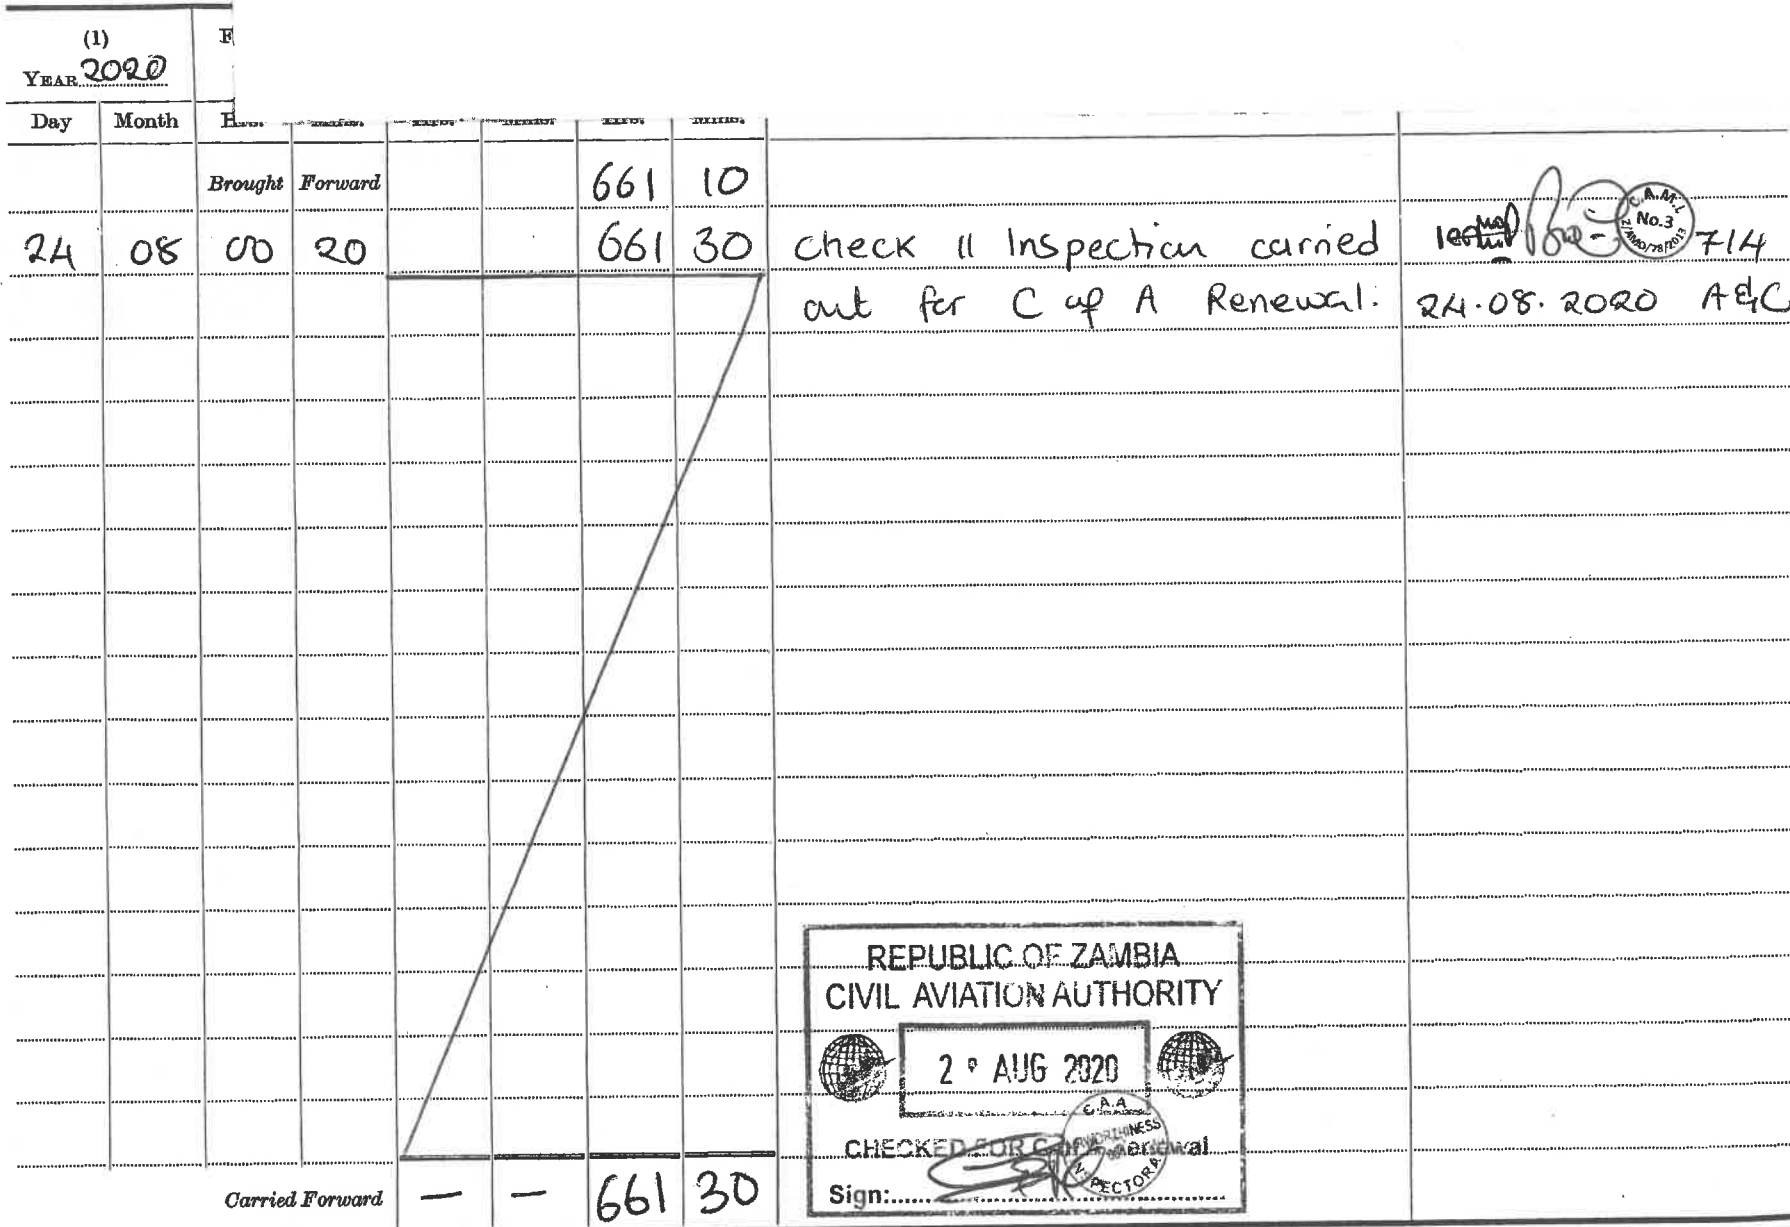 (1)
YEAR 2020
Day Month
Brought Forward 661 10
24 08 00 20 661 30 Check 11 Inspection carried 714
out for C of A Renewal. 24.08.2020 A&C
C.A.M.L
No.3
REPUBLIC OF ZAMBIA
CIVIL AVIATION AUTHORITY
AUG 2020
C.A.A
CHECKED FOR Renewal
Sign:
Carried Forward — — 661 30